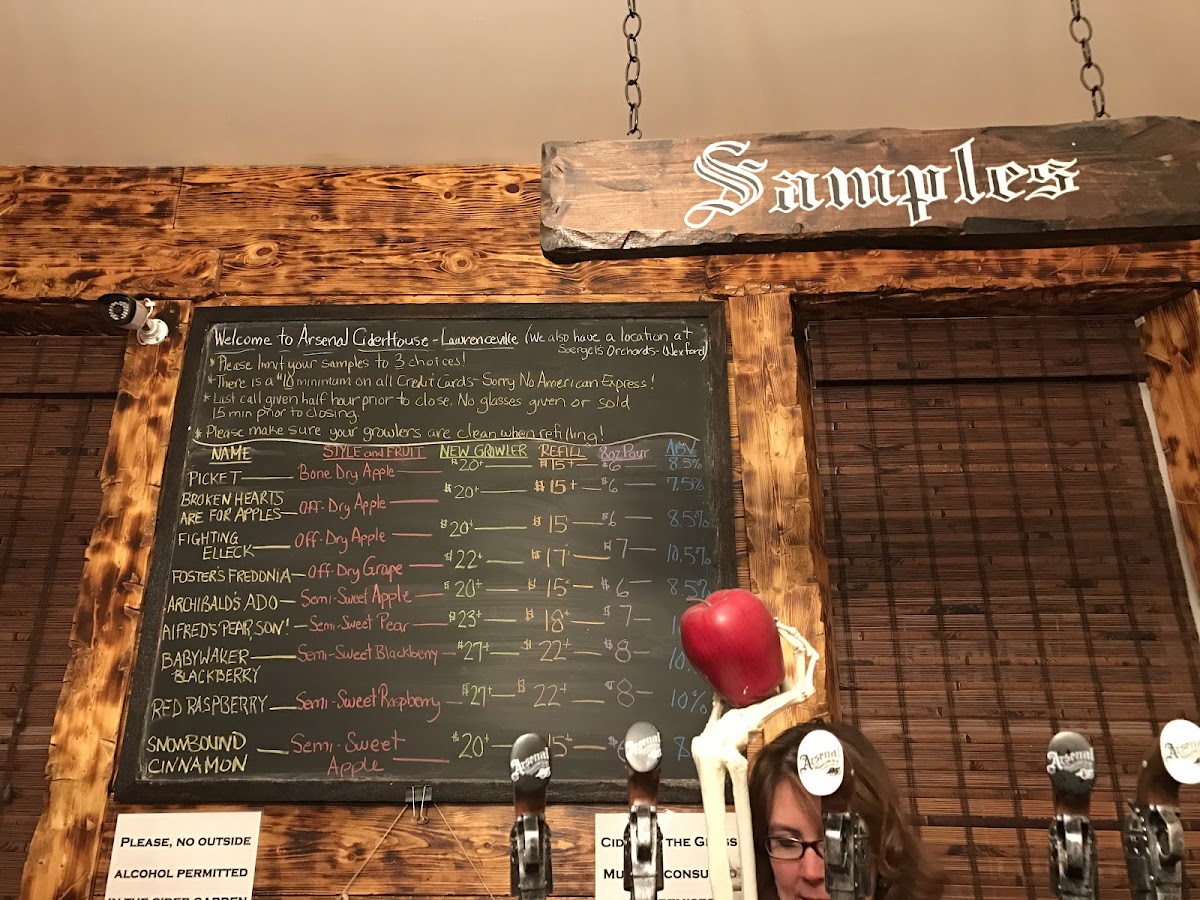 Samples
Welcome to Arsenal CiderHouse - Lawrenceville (We also have a location at
Soergel's Orchards - Wexford)
*Please limit your samples to 3 choices!
*There is a $10 minimum on all Credit Cards - Sorry No American Express!
*Last call given half hour prior to close. No glasses given or sold
15 min prior to closing.
*Please make sure your growlers are clean when refilling!
NAME STYLE and FRUIT NEW GROWLER REFILL 8oz Pour ABV
PICKET Bone Dry Apple $20+ $15+ $6 8.5%
BROKEN HEARTS
ARE FOR APPLES Off-Dry Apple $20+ $15+ $6 7.5%
FIGHTING
ELLECK Off-Dry Apple $20+ $15 $6 8.5%
FOSTER'S FREDONIA Off-Dry Grape $22+ $17+ $7 10.5%
ARCHIBALD'S ADO Semi-Sweet Apple $20+ $15+ $6 8.5%
ALFRED'S 'PEAR, SON! Semi-Sweet Pear $23+ $18+ $7
BABYWAKER
BLACKBERRY Semi-Sweet Blackberry $27+ $22+ $8 10
RED RASPBERRY Semi-Sweet Raspberry $27+ $22+ $8 10%
SNOWBOUND
CINNAMON Semi-Sweet
Apple $20+ 15+ 8
Arsenal
Arsenal
Arsenal
Arsenal
Arsenal
PLEASE, NO OUTSIDE
ALCOHOL PERMITTED
IN THE CIDER GARDEN
CID THE GL SS
MU CONSU